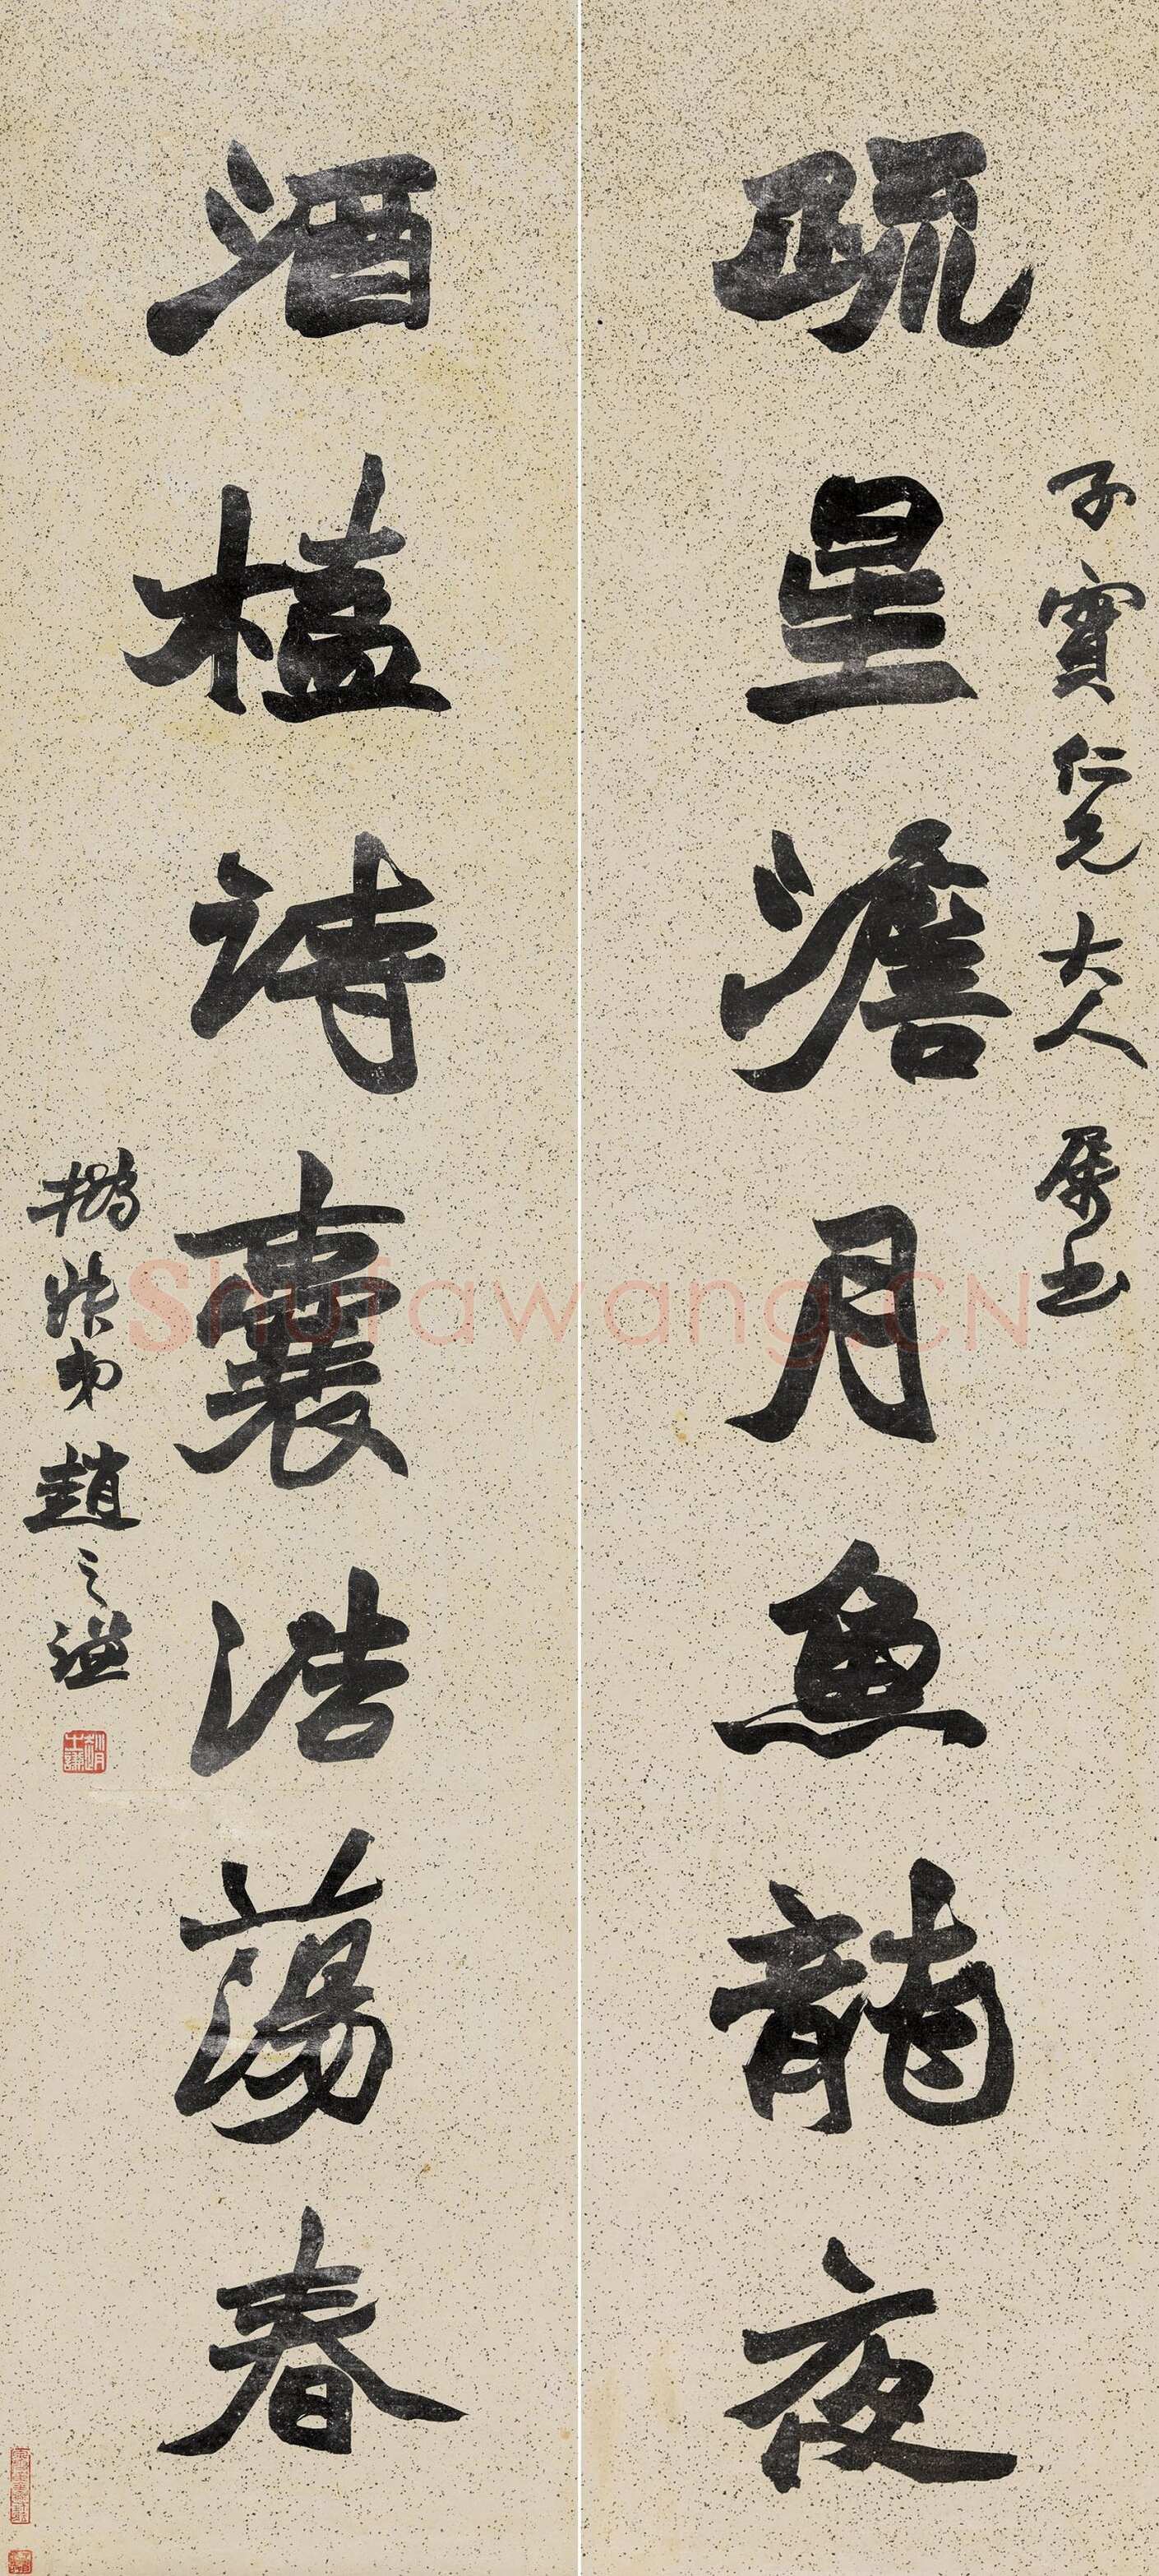 子寶仁兄大人屬書
疏星澹月魚龍夜
酒榼詩囊浩蕩春
撝叔弟趙之謙
Shufawang.CN